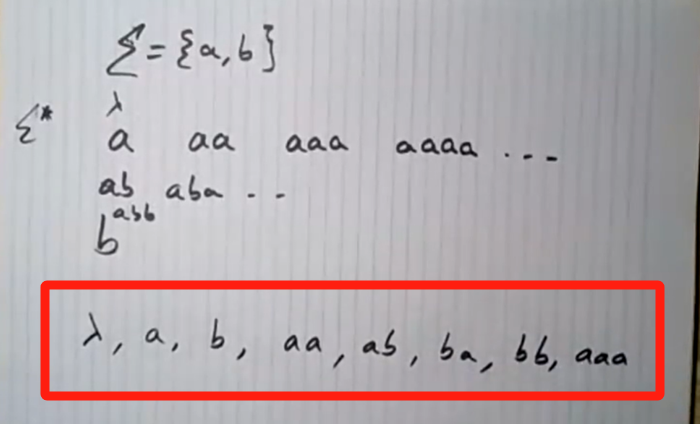 Σ = {a, b}
λ
Σ* a aa aaa aaaa ...
ab aba ..
abb
b
λ, a, b, aa, ab, ba, bb, aaa